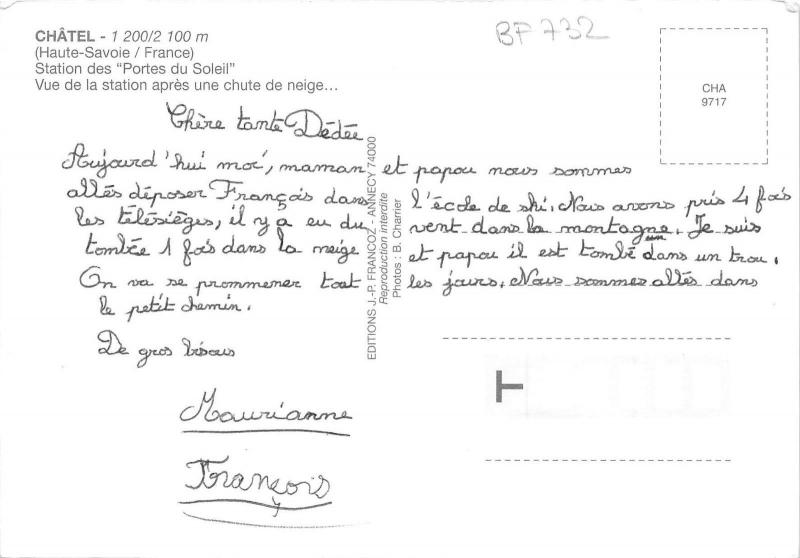 CHÂTEL - 1 200/2 100 m
(Haute-Savoie / France)
Station des "Portes du Soleil"
Vue de la station après une chute de neige...
BF 732
CHA
9717
Chère tante Dédée
Aujourd'hui moi, maman et papou nous sommes
allés déposer François dans l'école de ski. Nous avons pris 4 fois
les télésièges, il y a eu du vent dans la montagne. Je suis
tombée 1 fois dans la neige et papou il est tombé dans un trou.
On va se prommener tout les jours. Nous sommes allés dans
le petit chemin.
De gros bisous
Maurianne
François
EDITIONS J.-P. FRANCOZ - ANNECY 74000
Reproduction interdite
Photos : B. Charrier